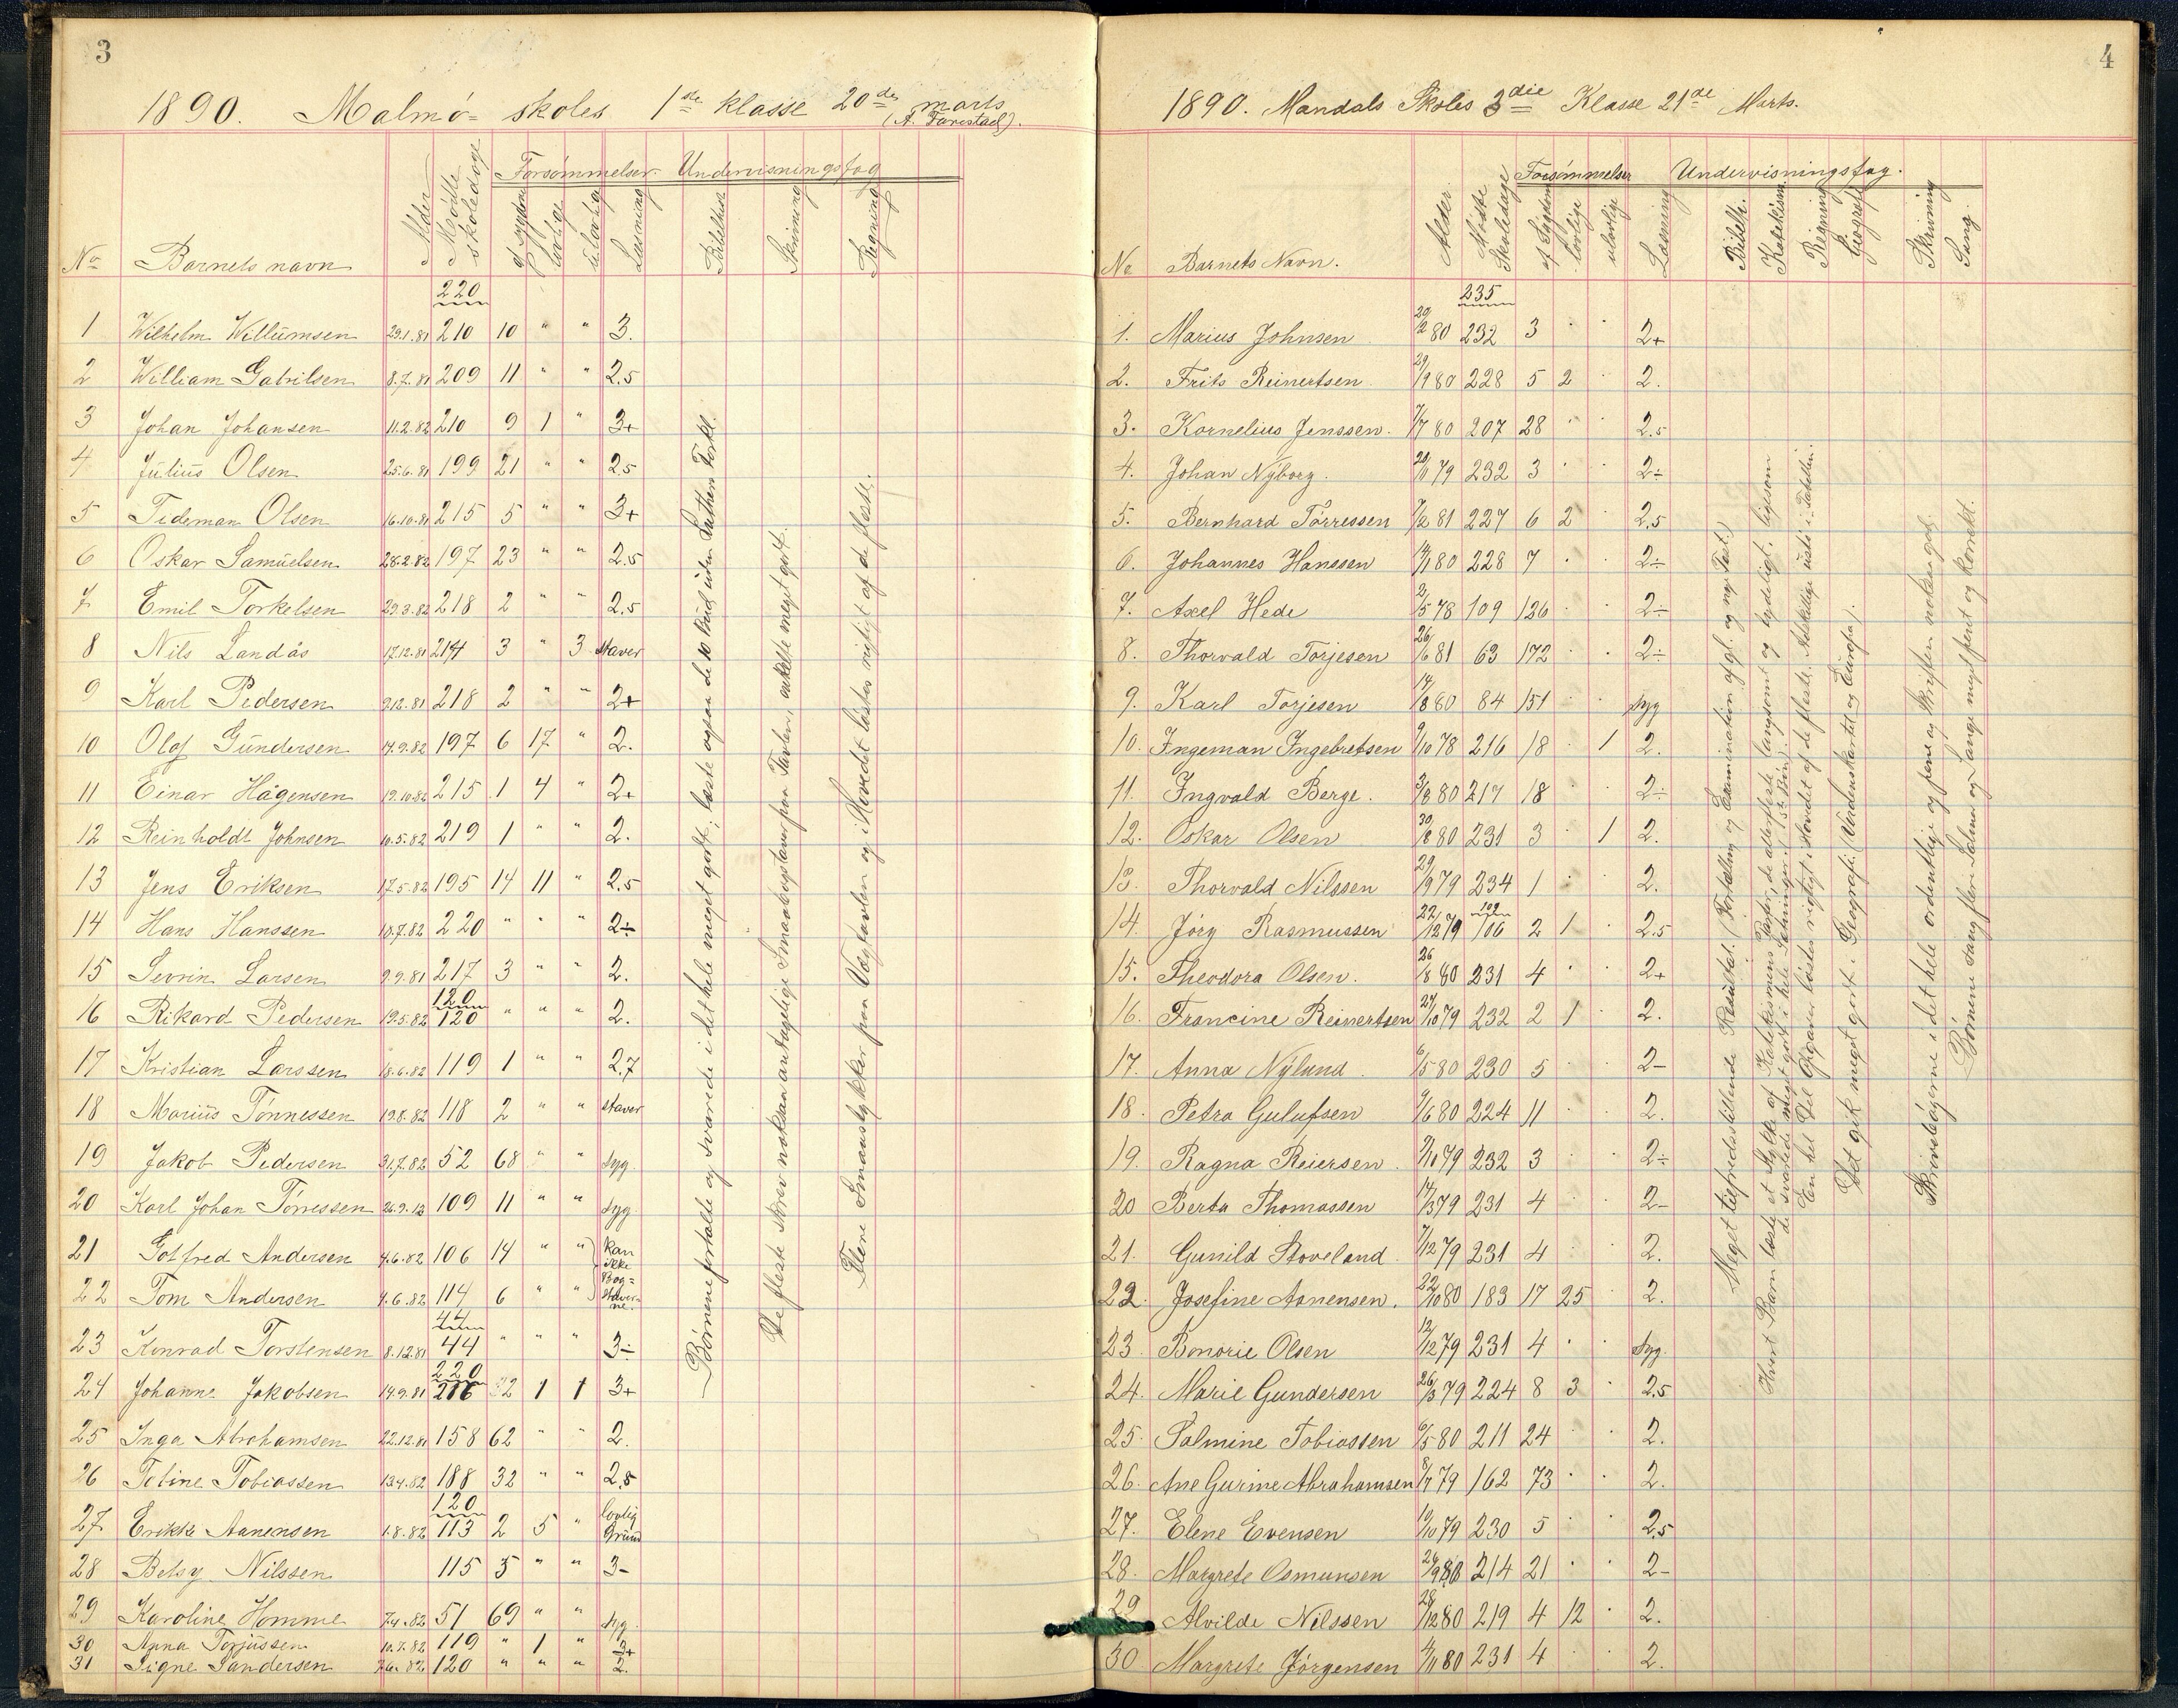 3
1890. Malmø= skoles 1ste klasse 20de marts
(A. Tarestad).
No Barnets navn Alder Mødte skoledage Forsømmelser af sygdom lovlige ulovlig Undervisningsfag Læsning Bibelhist Skrivning Regning
220
1 Wilhelm Willumsen 29.1.81 210 10 " " 3.
2 William Gabrilsen 8.7.81 209 11 " " 2.5
3 Johan Johansen 11.2.82 210 9 1 " 3+
4 Julius Olsen 25.6.81 199 21 " " 2.5
5 Tideman Olsen 16.10.81 215 5 " " 3+
6 Oskar Samuelsen 28.2.82 197 23 " " 2.5
7 Emil Torkelsen 29.3.82 218 2 " " 2.5
8 Nils Landås 17.12.81 214 3 " 3 staver
9 Karl Pedersen 9.12.81 218 2 " " 2+
10 Olaf Gundersen 17.9.82 197 6 17 " 2.
11 Einar Hågensen 19.10.82 215 1 4 " 2+
12 Reinholdt Johnsen 10.5.82 219 1 " " 2.
13 Jens Eriksen 17.5.82 195 14 11 " 2.5
14 Hans Hanssen 10.7.82 220 " " " 2÷
15 Sevrin Larsen 9.9.81 217 3 " " 2.
120
16 Rikard Pedersen 19.5.82 120 " " " 2.
17 Kristian Larssen 18.6.82 119 1 " " 2.7
18 Marius Tønnessen 19.8.82 118 2 " " staver
19 Jakob Pedersen 31.7.82 52 68 " " syg.
20 Karl Johan Tørressen 26.9.12 109 11 " " syg.
21 Gotfred Andersen 4.6.82 106 14 " " kan ikke
22 Tom Andersen 4.6.82 114 6 " " Bog=staver=ne.
44
23 Konrad Torstensen 8.12.81 44 " " " 3÷
220
24 Johanne Jakobsen 14.9.81 216 32 1 1 3+
25 Inga Abrahamsen 22.12.81 158 62 " " 2.
26 Tetine Tobiassen 13.4.82 188 32 " " 2.5
120
27 Erikke Aanensen 1.8.82 113 2 5 " lovlig Grund
28 Betsy Nilssen 115 5 " " 3-
29 Karoline Homme 7.4.82 51 69 " " syg.
30 Anna Torjussen 10.7.82 119 " 1 " 3+
31 Signe Sandersen 7.6.82 120 " " " 2.
Børnene fortalte og svarede i det hele meget godt; læste ogsaa de 10 Bud uden Luthers Forkl.
De fleste skrev noksaa antagelige Smaabogstaver paa Tavlen, enkelte meget godt.
Flere Smaastykker paa Vægtavlen og i Hovedet løstes rigtigt af de fleste.
4
1890. Mandals Skoles 3die Klasse 21de Marts.
No Barnets Navn. Alder. Mødte Skoledage Forsømmelser af Sygdom lovlige ulovlige Undervisningsfag. Læsning Bibelh. Katekism. Regning Geografi Skrivning Sang.
235
1. Marius Johnsen 29/2 80 232 3 · · 2+
2. Frits Reinertsen 29/9 80 228 5 2 · 2.
3. Kornelius Jenssen. 7/7 80 207 28 · · 2.5
4. Johan Nyborg. 20/11 79 232 3 · · 2÷
5. Bernhard Tørressen 7/2 81 227 6 2 · 2.5
6. Johannes Hanssen 14/1 80 228 7 · · 2÷
7. Axel Hede 2/5 78 109 126 · · 2÷
8. Thorvald Torjesen 26/6 81 63 172 · · 2÷
9. Karl Torjesen 14/8 80 84 151 · · syg
10. Ingeman Ingebretsen 9/10 78 216 18 · 1 2.
11. Ingvald Berge. 3/8 80 217 18 · · 2÷
12. Oskar Olsen 30/8 80 231 3 · 1 2.
13. Thorvald Nilssen 29/9 79 234 1 · · 2.
109
14. Jørg Rasmussen 22/12 79 106 2 1 · 2.5
15. Theodora Olsen. 26/8 80 231 4 · · 2+
16. Francine Reinertsen 27/10 79 232 2 1 · 2.
17. Anna Nylund. 6/5 80 230 5 · · 2-
18. Petra Gulufsen 9/6 80 224 11 · · 2.
19. Ragna Reiersen. 9/10 79 232 3 · · 2÷
20 Berta Thomassen 14/3 79 231 4 · · 2-
21. Gunild Stoveland. 7/12 79 231 4 · · 2.
22. Josefine Aanensen. 22/10 80 183 17 25 · 2.
23. Bonorie Olsen 12/12 79 231 4 · · syg.
24. Marie Gundersen 26/3 79 224 8 3 · 2.5
25. Salmine Tobiassen 6/5 80 211 24 · · 2.
26. Ane Gurine Abrahamsen 8/7 79 162 73 · · 2.
27. Elene Evensen 19/10 79 230 5 · · 2.5
28. Margrete Osmunsen 24/9 80 214 21 · · 2-
29 Alvilde Nilssen 28/12 80 219 4 12 · 2.
30 Margrete Jørgensen 4/11 80 231 4 · · 2.
Meget tilfredsstillende Resultat. (Fortælling og Examination af gl. og ny Test.)
Hvert Barn læste et Stykke af Katekismens Parter, de allerfleste langsomt og tydeligt, ligesom
de svarede meget godt i hele Sætninger. (5te Bøn).
En hel Del Opgaver løstes rigtigt i Hovedet af de fleste. Adskillige usikre i Tabellen.
Det gik meget godt i Geografi. (Verdenskartet og Europa).
Skrivebøgerne i det hele ordentlige og pene og Skriften noksaa god.
Børnene sang flere Salmer og Sange meget pent og korrekt.